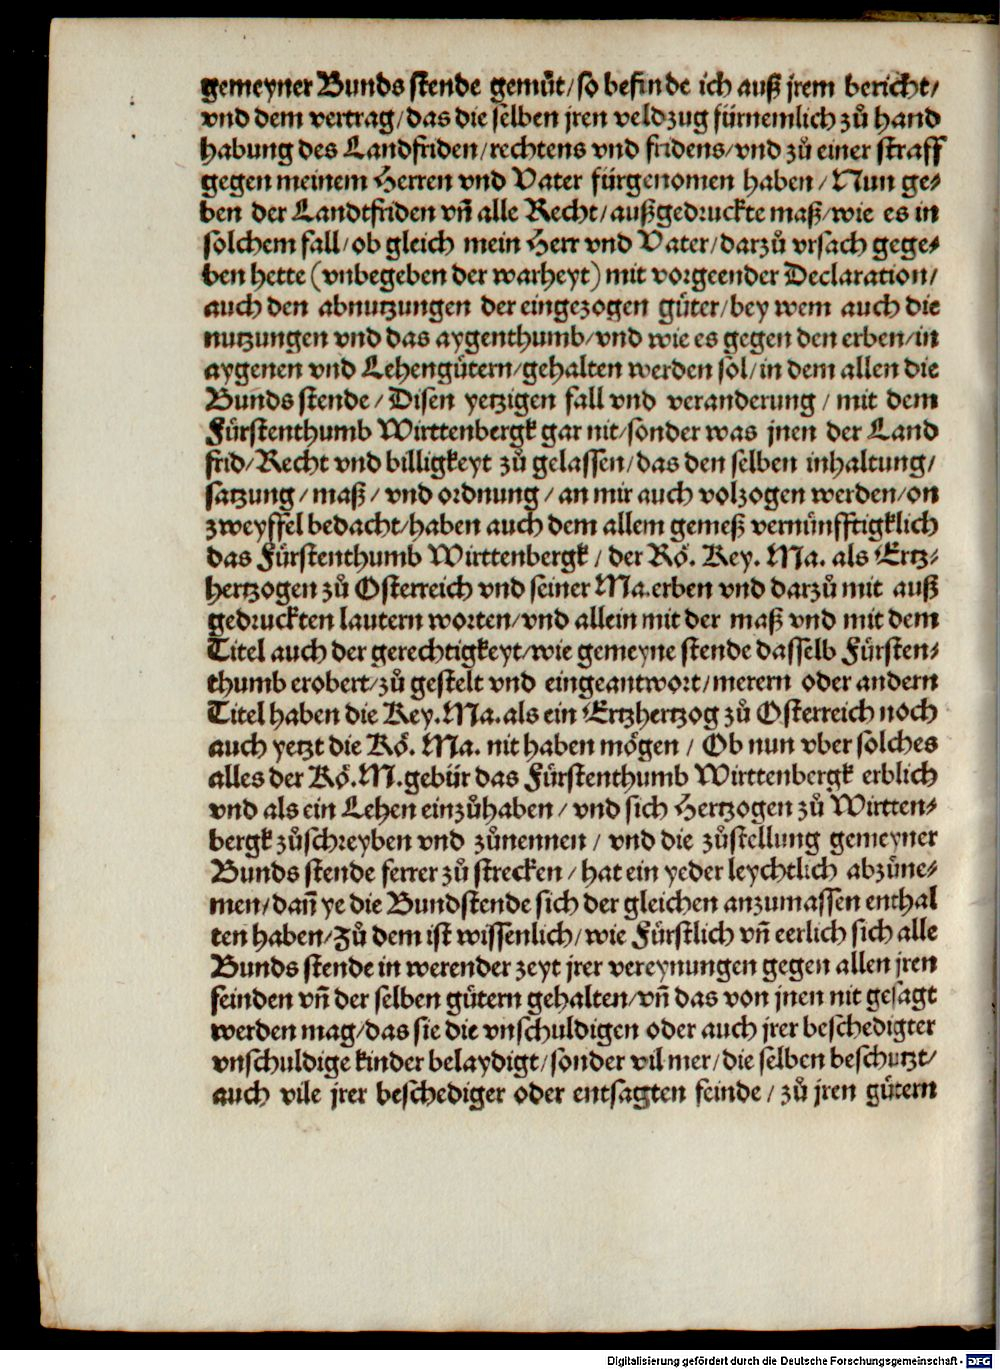 gemeyner Bunds stende gemuͤt/so befinde ich auß jrem bericht/
vnd dem vertrag/das die selben jren veldzug fürnemlich zuͦ hand
habung des Landfriden/rechtens vnd fridens/vnd zuͦ einer straff
gegen meinem Herren vnd Vater fürgenomen haben/Nun ge⸗
ben der Landtfriden vñ alle Recht/außgedruckte maß/wie es in
solchem fall/ob gleich mein Herr vnd Vater/darzuͦ vrsach gege⸗
ben hette (vnbegeben der warheyt) mit vorgeender Declaration/
auch den abnutzungen der eingezogen guͤter/bey wem auch die
nutzungen vnd das aygenthumb/vnd wie es gegen den erben/in
aygenen vnd Lehenguͤtern/gehalten werden sol/in dem allen die
Bunds stende/Disen yetzigen fall vnd veranderung/mit dem
Fürstenthumb Wirttenbergk gar nit/sonder was jnen der Land
frid/Recht vnd billigkeyt zuͦ gelassen/das den selben inhaltung/
satzung/maß/vnd ordnung/an mir auch volzogen werden/on
zweyffel bedacht/haben auch dem allem gemeß vernünfftigklich
das Fürstenthumb Wirttenbergk/der Roͤ. Key. Ma. als Ertz⸗
hertzogen zuͦ Osterreich vnd seiner Ma.erben vnd darzuͦ mit auß
gedruckten lautern worten/vnd allein mit der maß vnd mit dem
Titel auch der gerechtigkeyt/wie gemeyne stende dasselb Fürsten⸗
thumb erobert/zuͦ gestelt vnd eingeantwort/merern oder andern
Titel haben die Key.Ma.als ein Ertzhertzog zuͦ Osterreich noch
auch yetzt die Roͤ. Ma. nit haben moͤgen/Ob nun vber solches
alles der Roͤ.M.gebür das Fürstenthumb Wirttenbergk erblich
vnd als ein Lehen einzuͦhaben/vnd sich Hertzogen zuͦ Wirtten⸗
bergk zuͦschreyben vnd zuͦnennen/vnd die zuͦstellung gemeyner
Bunds stende ferrer zuͦ strecken/hat ein yeder leychtlich abzuͦne⸗
men/dañ ye die Bundstende sich der gleichen anzumassen enthal
ten haben/Zuͦ dem ist wissenlich/wie Fürstlich vñ eerlich sich alle
Bunds stende in werender zeyt jrer vereynungen gegen allen jren
feinden vñ der selben guͤtern gehalten/vñ das von jnen nit gesagt
werden mag/das sie die vnschuldigen oder auch jrer beschedigter
vnschuldige kinder belaydigt/sonder vil mer/die selben beschutzt/
auch vile jrer beschediger oder entsagten feinde/zuͦ jren guͤtern
Digitalisierung gefördert durch die Deutsche Forschungsgemeinschaft - DFG